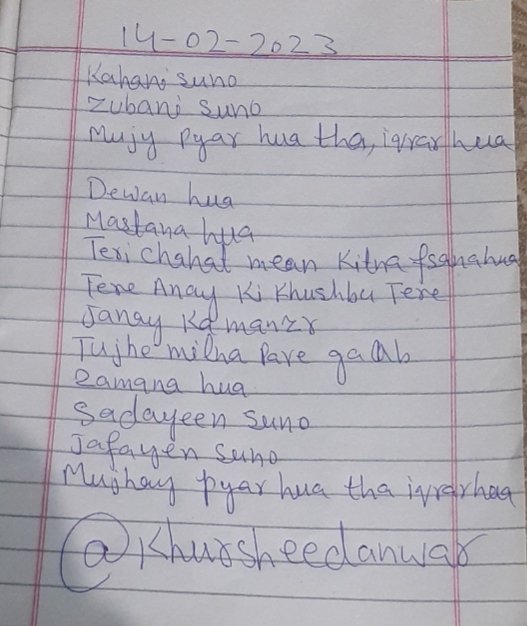 14-02-2023
Kahani suno
Zubani suno
Mujy pyar hua tha, iqrar hua
Dewan hua
Mastana hua
Teri chahat mean kitna fsanahua
Tere Anay ki khushbu Tere
Janay ka manzr
Tujhe milna Pare ga ab
Zamana hua
Sadayeen suno
Jafayen suno
Mujhay pyar hua tha iqrarhua
@Khursheedanwar